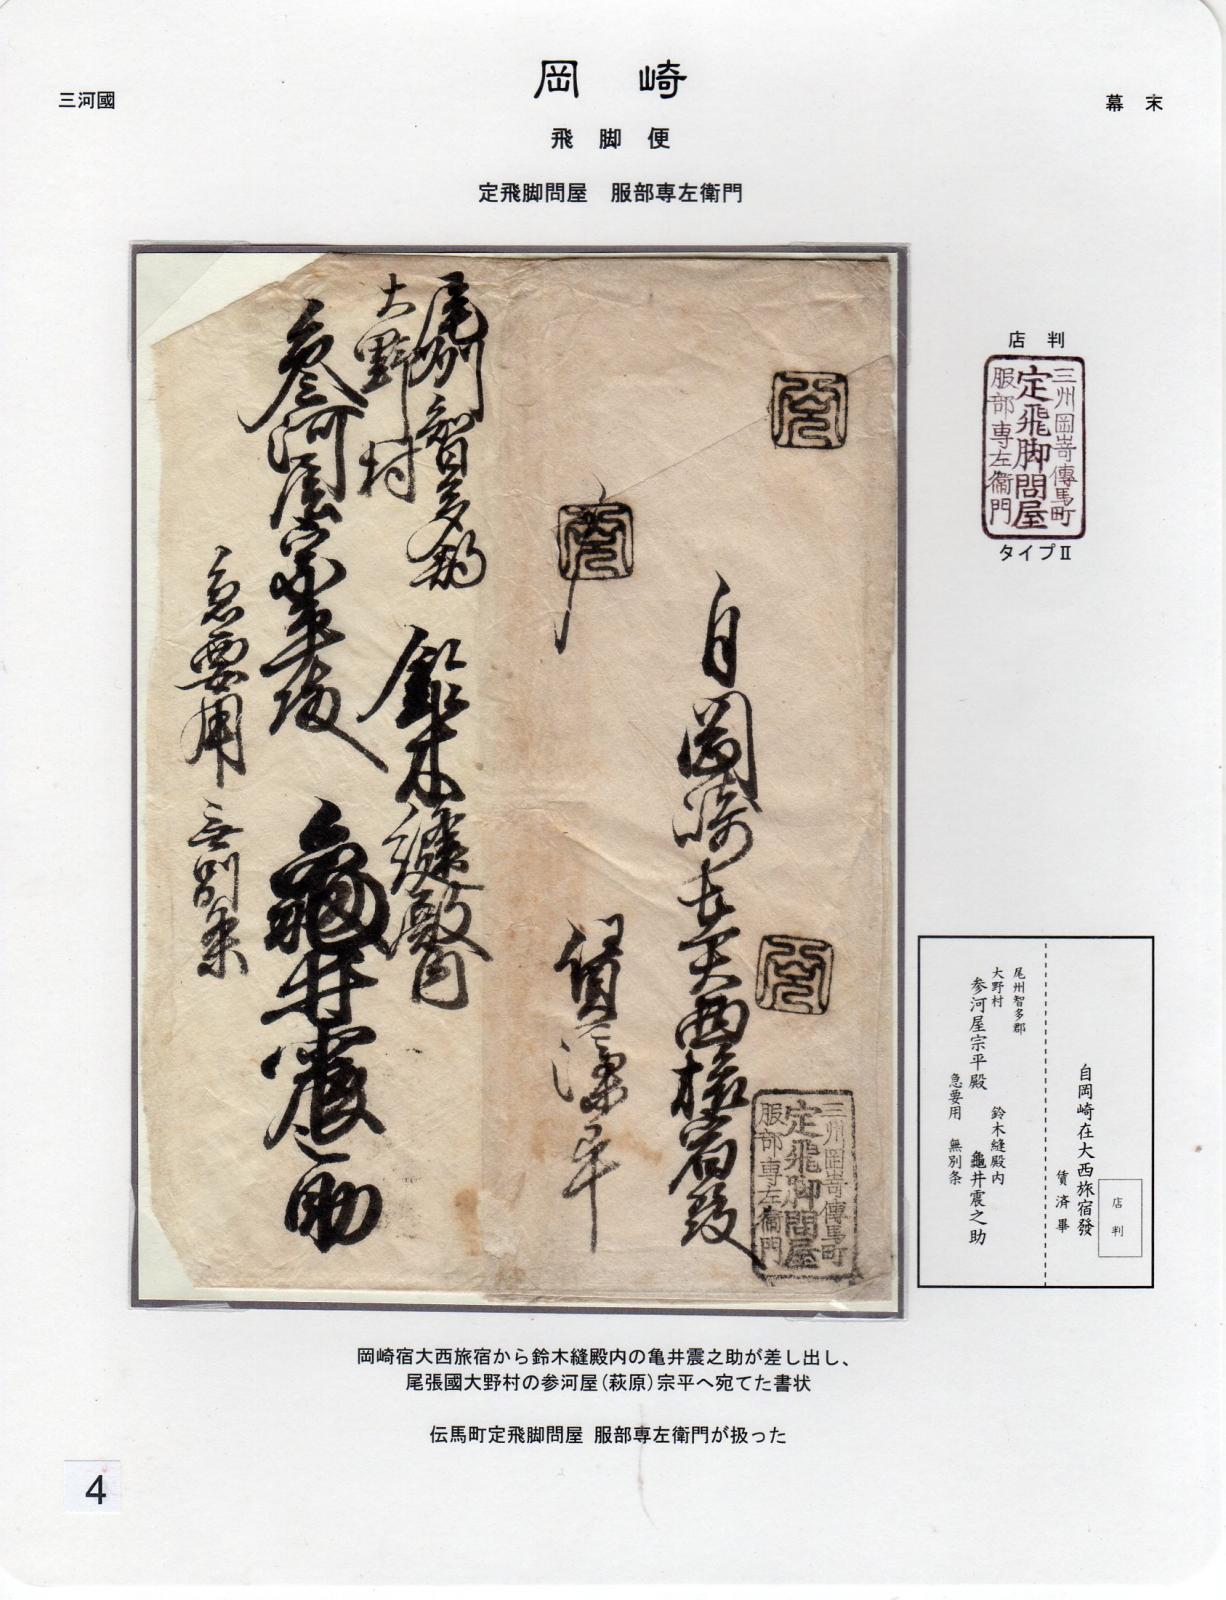 三河國
岡崎
幕末
飛脚便
定飛脚問屋 服部専左衛門
自岡崎在大西旅宿發
賃済畢
三州岡嵜傳馬町
定飛脚問屋
服部専左衞門
尾州智多郡
大野村
鈴木縫殿内
参河屋宗平殿
亀井震之助
急要用 無別条
店判
三州岡嵜傳馬町
定飛脚問屋
服部専左衞門
タイプⅡ
自岡崎在大西旅宿發
賃済畢
店判
尾州智多郡
大野村
鈴木縫殿内
参河屋宗平殿
亀井震之助
急要用 無別条
岡崎宿大西旅宿から鈴木縫殿内の亀井震之助が差し出し、
尾張國大野村の参河屋(萩原)宗平へ宛てた書状
伝馬町定飛脚問屋 服部専左衛門が扱った
4